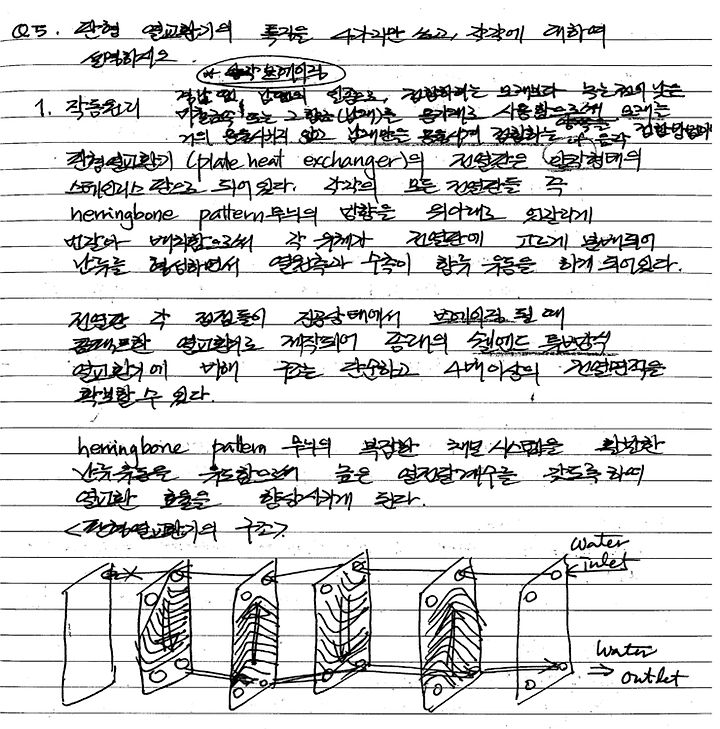 Q5. 판형 열교환기의 특징을 4가지만 쓰고, 각각에 대하여
설명하시오
1. 작동원리
접합하려는 모재보다 녹는점이 낮은
비철금속 또는 그 합금(납재)을 용가재로 사용함으로써 모재는
거의 용융시키지 않고 납재만을 용융시켜 접합하는
판형열교환기(plate heat exchanger)의 전열판은 요철형태의
스테인리스 판으로 되어 있다. 각각의 모든 전열판들 즉
herringbone pattern 무늬의 방향을 위아래로 엇갈리게
번갈아 배치함으로써 각 유체가 전열판에 고르게 분배되어
난류를 형성하면서 열원측과 수측이 향류 유동을 하게 되어있다.
전열판 각 접점들이 진공상태에서 브레이징 될 때
콤팩트한 열교환기로 제작되어 종래의 쉘앤드 튜브방식
열교환기에 비해 구조는 단순하고 4배이상의 전열면적을
확보할 수 있다.
herringbone pattern 무늬의 복잡한 채널 시스템을 활발한
난류유동을 유도함으로써 높은 열전달계수를 갖도록 하여
열교환 효율을 향상시키게 된다.
<판형열교환기의 구조>
Water
inlet
Water
outlet